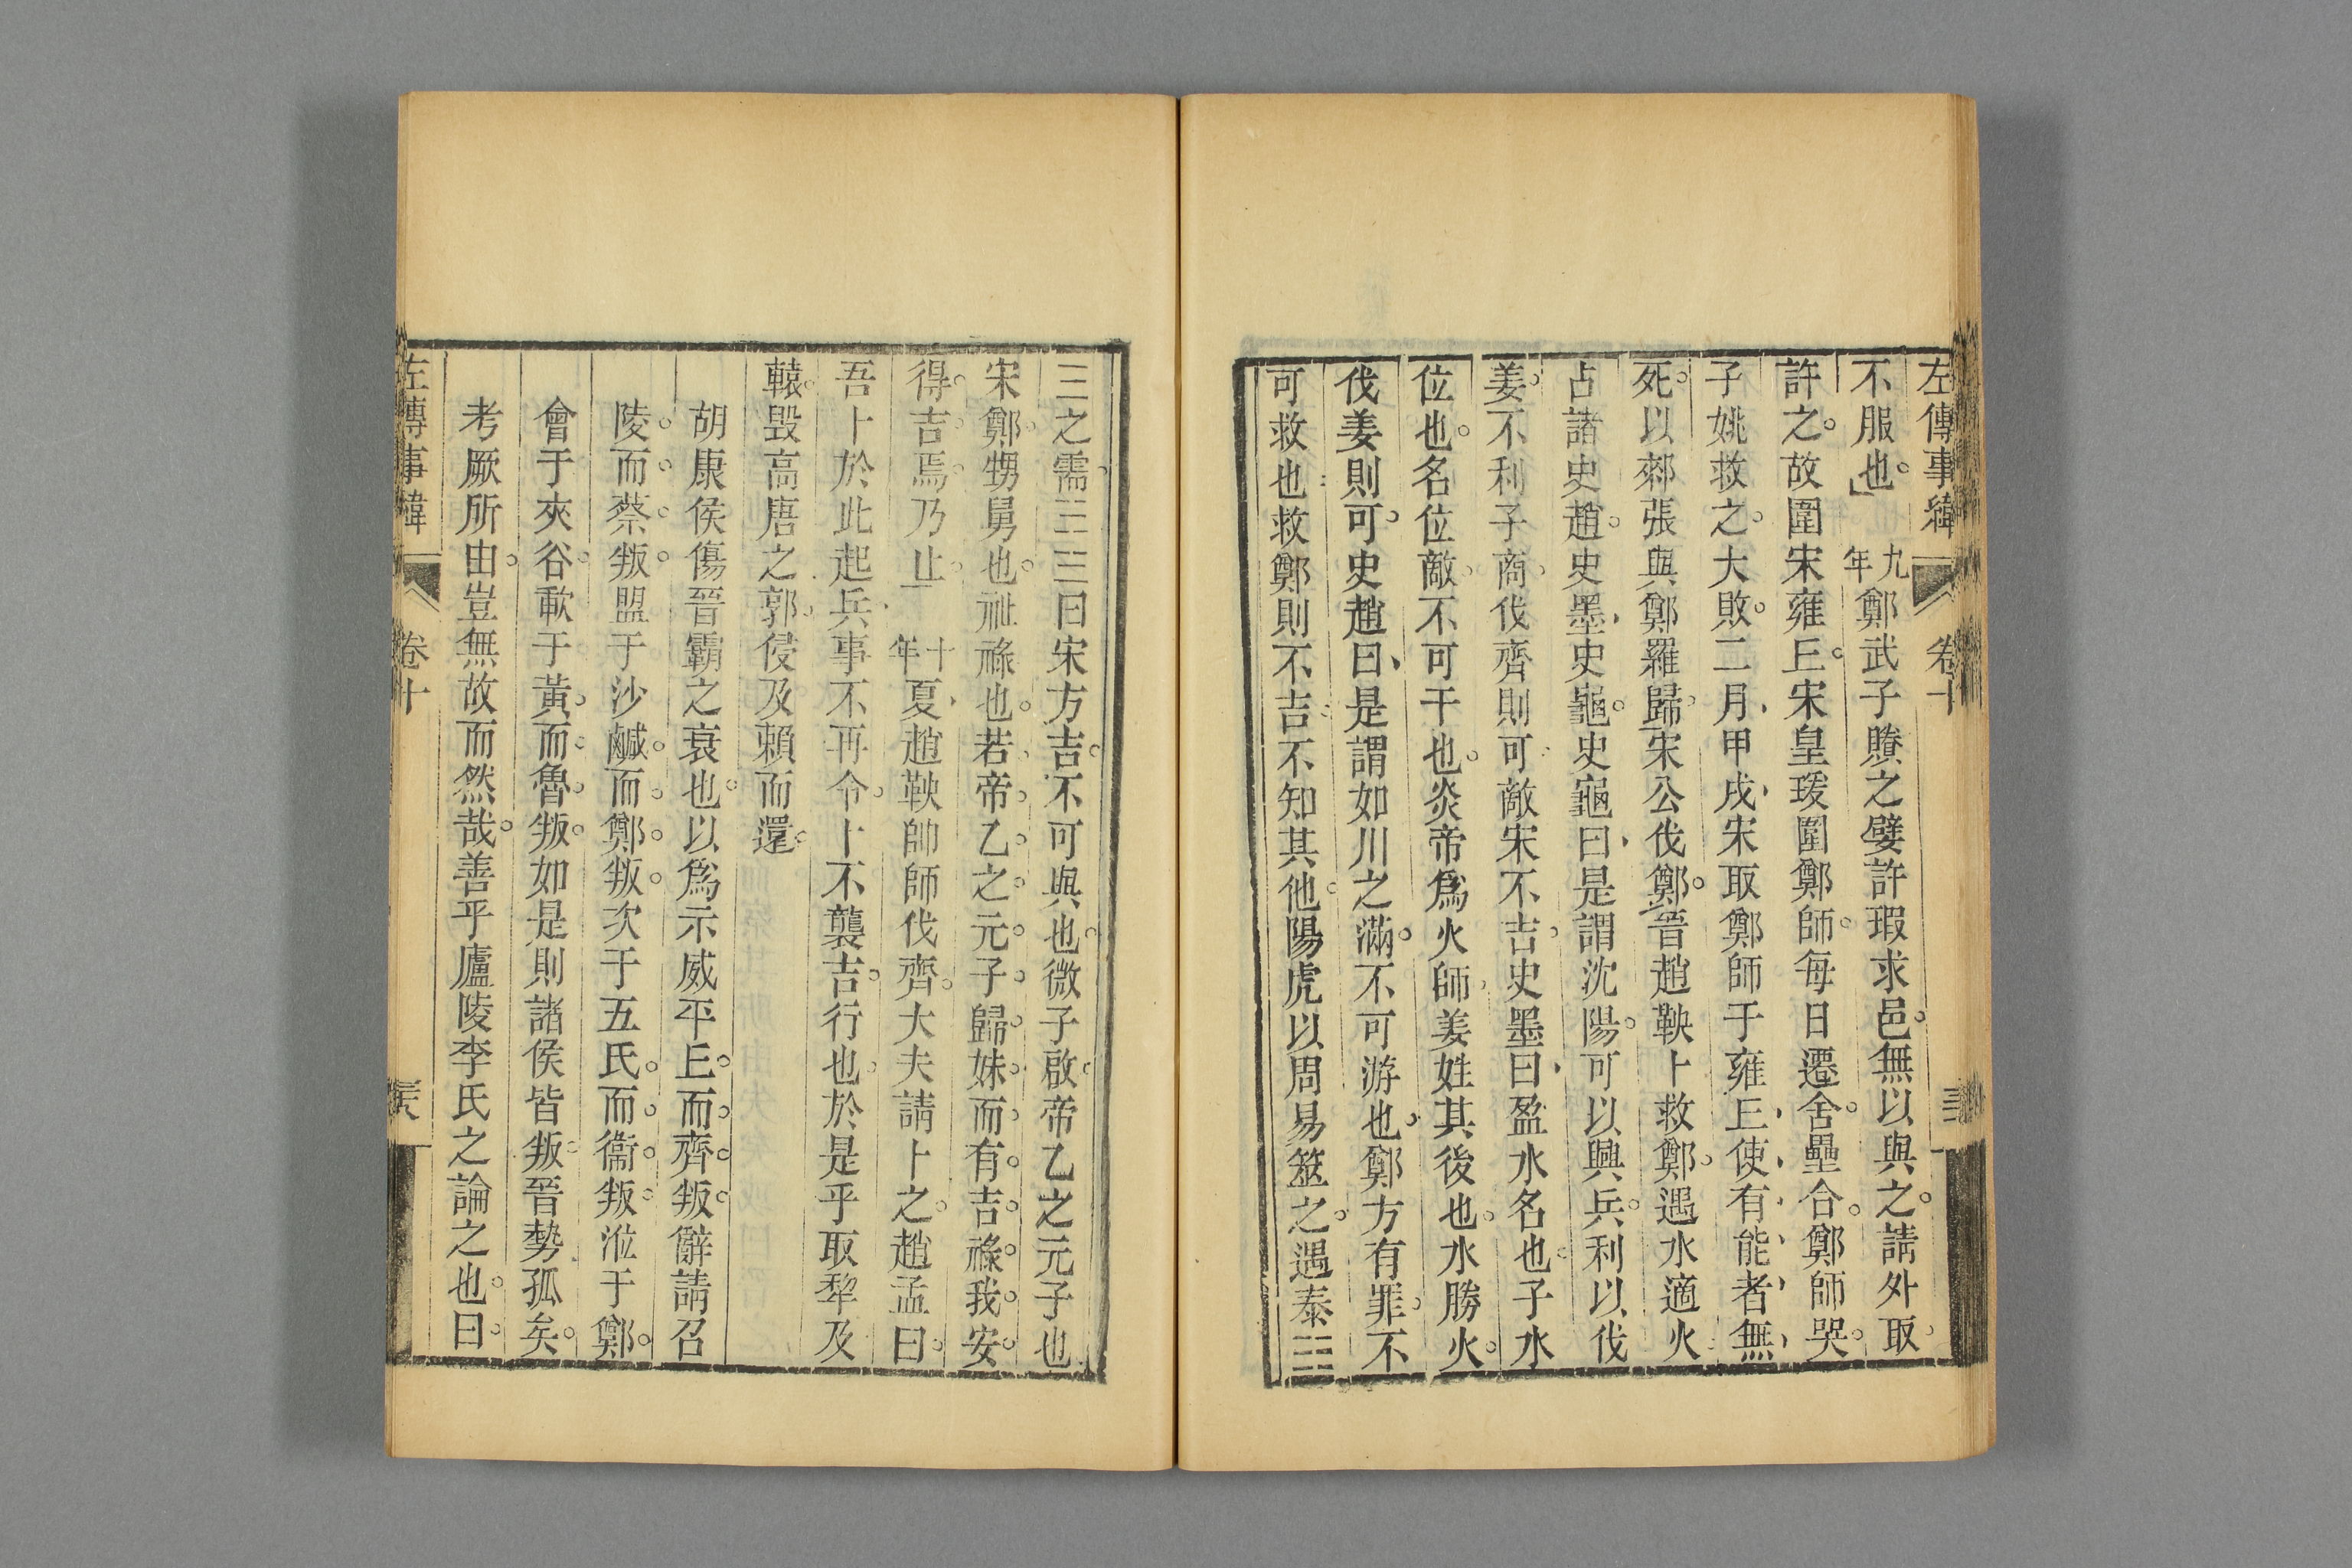 左傳事緯 卷十
不服也九年鄭武子賸之嬖許瑕求邑無以與之請外取
許之故圍宋雍丘宋皇瑗圍鄭師每日遷舍壘合鄭師哭
子姚救之大敗二月甲戌宋取鄭師于雍丘使有能者無
死以郟張與鄭羅歸宋公伐鄭晉趙鞅卜救鄭遇水適火
占諸史趙史墨史龜史龜曰是謂沈陽可以興兵利以伐
姜不利子商伐齊則可敵宋不吉史墨曰盈水名也子水
位也名位敵不可干也炎帝爲火師姜姓其後也水勝火
伐姜則可史趙曰是謂如川之滿不可游也鄭方有罪不
可救也救鄭則不吉不知其他陽虎以周易筮之遇泰䷊
三之需䷄曰宋方吉不可與也微子啟帝乙之元子也
宋鄭甥舅也祉祿也若帝乙之元子歸妹而有吉祿我安
得吉焉乃止十年夏趙鞅帥師伐齊大夫請卜之趙孟曰
吾卜於此起兵事不再令卜不襲吉行也於是乎取犂及
轅毁高唐之郭侵及賴而還
胡康侯傷晉霸之衰也以爲示威平丘而齊叛辭請召
陵而蔡叛盟于沙鹹而鄭叛次于五氏而衞叛涖于鄭
會于夾谷歃于黃而魯叛如是則諸侯皆叛晉勢孤矣
考厥所由豈無故而然哉善乎廬陵李氏之論之也曰
左傳事緯 卷十